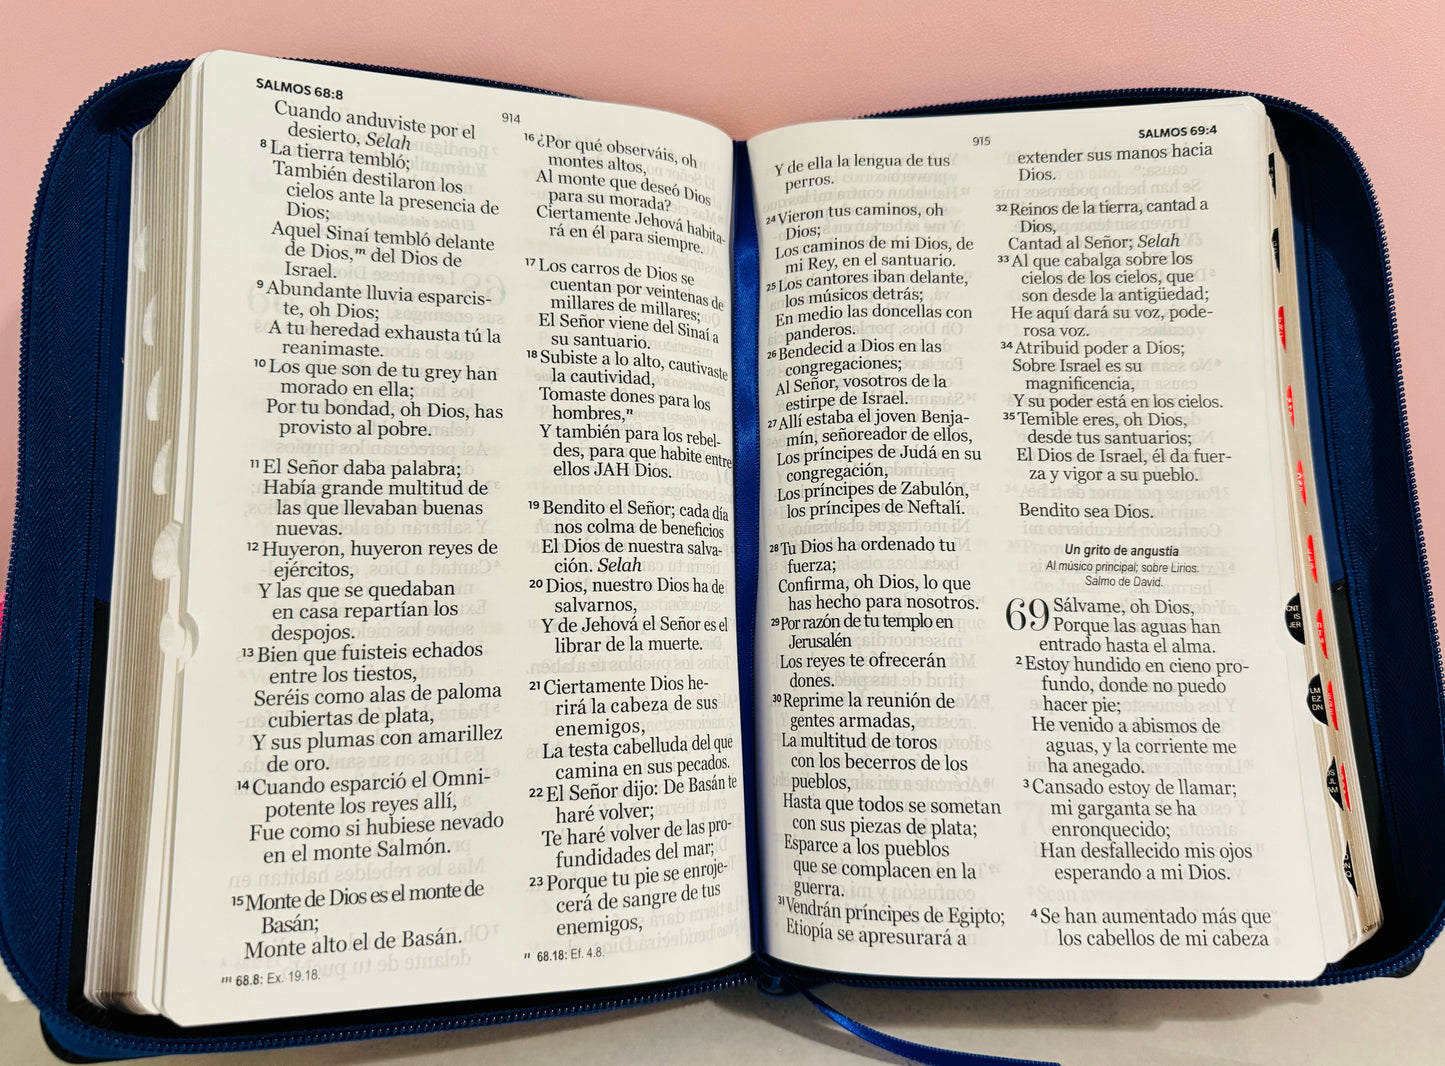 SALMOS 68:8
914
Cuando anduviste por el
desierto, Selah
8 La tierra tembló;
También destilaron los
cielos ante la presencia de
Dios;
Aquel Sinaí tembló delante
de Dios,m del Dios de
Israel.
9 Abundante lluvia esparcis-
te, oh Dios;
A tu heredad exhausta tú la
reanimaste.
10 Los que son de tu grey han
morado en ella;
Por tu bondad, oh Dios, has
provisto al pobre.
11 El Señor daba palabra;
Había grande multitud de
las que llevaban buenas
nuevas.
12 Huyeron, huyeron reyes de
ejércitos,
Y las que se quedaban
en casa repartían los
despojos.
13 Bien que fuisteis echados
entre los tiestos,
Seréis como alas de paloma
cubiertas de plata,
Y sus plumas con amarillez
de oro.
14 Cuando esparció el Omni-
potente los reyes allí,
Fue como si hubiese nevado
en el monte Salmón.
15 Monte de Dios es el monte de
Basán;
Monte alto el de Basán.
m 68.8: Ex. 19.18.
16 ¿Por qué observáis, oh
montes altos,
Al monte que deseó Dios
para su morada?
Ciertamente Jehová habita-
rá en él para siempre.
17 Los carros de Dios se
cuentan por veintenas de
millares de millares;
El Señor viene del Sinaí a
su santuario.
18 Subiste a lo alto, cautivaste
la cautividad,
Tomaste dones para los
hombres,n
Y también para los rebel-
des, para que habite entre
ellos JAH Dios.
19 Bendito el Señor; cada día
nos colma de beneficios
El Dios de nuestra salva-
ción. Selah
20 Dios, nuestro Dios ha de
salvarnos,
Y de Jehová el Señor es el
librar de la muerte.
21 Ciertamente Dios he-
rirá la cabeza de sus
enemigos,
La testa cabelluda del que
camina en sus pecados.
22 El Señor dijo: De Basán te
haré volver;
Te haré volver de las pro-
fundidades del mar;
23 Porque tu pie se enroje-
cerá de sangre de tus
enemigos,
n 68.18: Ef. 4.8.
915
SALMOS 69:4
Y de ella la lengua de tus
perros.
24 Vieron tus caminos, oh
Dios;
Los caminos de mi Dios, de
mi Rey, en el santuario.
25 Los cantores iban delante,
los músicos detrás;
En medio las doncellas con
panderos.
26 Bendecid a Dios en las
congregaciones;
Al Señor, vosotros de la
estirpe de Israel.
27 Allí estaba el joven Benja-
mín, señoreador de ellos,
Los príncipes de Judá en su
congregación,
Los príncipes de Zabulón,
los príncipes de Neftalí.
28 Tu Dios ha ordenado tu
fuerza;
Confirma, oh Dios, lo que
has hecho para nosotros.
29 Por razón de tu templo en
Jerusalén
Los reyes te ofrecerán
dones.
30 Reprime la reunión de
gentes armadas,
La multitud de toros
con los becerros de los
pueblos,
Hasta que todos se sometan
con sus piezas de plata;
Esparce a los pueblos
que se complacen en la
guerra.
31 Vendrán príncipes de Egipto;
Etiopía se apresurará a
extender sus manos hacia
Dios.
32 Reinos de la tierra, cantad a
Dios,
Cantad al Señor; Selah
33 Al que cabalga sobre los
cielos de los cielos, que
son desde la antigüedad;
He aquí dará su voz, pode-
rosa voz.
34 Atribuid poder a Dios;
Sobre Israel es su
magnificencia,
Y su poder está en los cielos.
35 Temible eres, oh Dios,
desde tus santuarios;
El Dios de Israel, él da fuer-
za y vigor a su pueblo.
Bendito sea Dios.
Un grito de angustia
Al músico principal; sobre Lirios.
Salmo de David.
69 Sálvame, oh Dios,
Porque las aguas han
entrado hasta el alma.
2 Estoy hundido en cieno pro-
fundo, donde no puedo
hacer pie;
He venido a abismos de
aguas, y la corriente me
ha anegado.
3 Cansado estoy de llamar;
mi garganta se ha
enronquecido;
Han desfallecido mis ojos
esperando a mi Dios.
4 Se han aumentado más que
los cabellos de mi cabeza
CNT
IS
JER
LM
EZ
DN